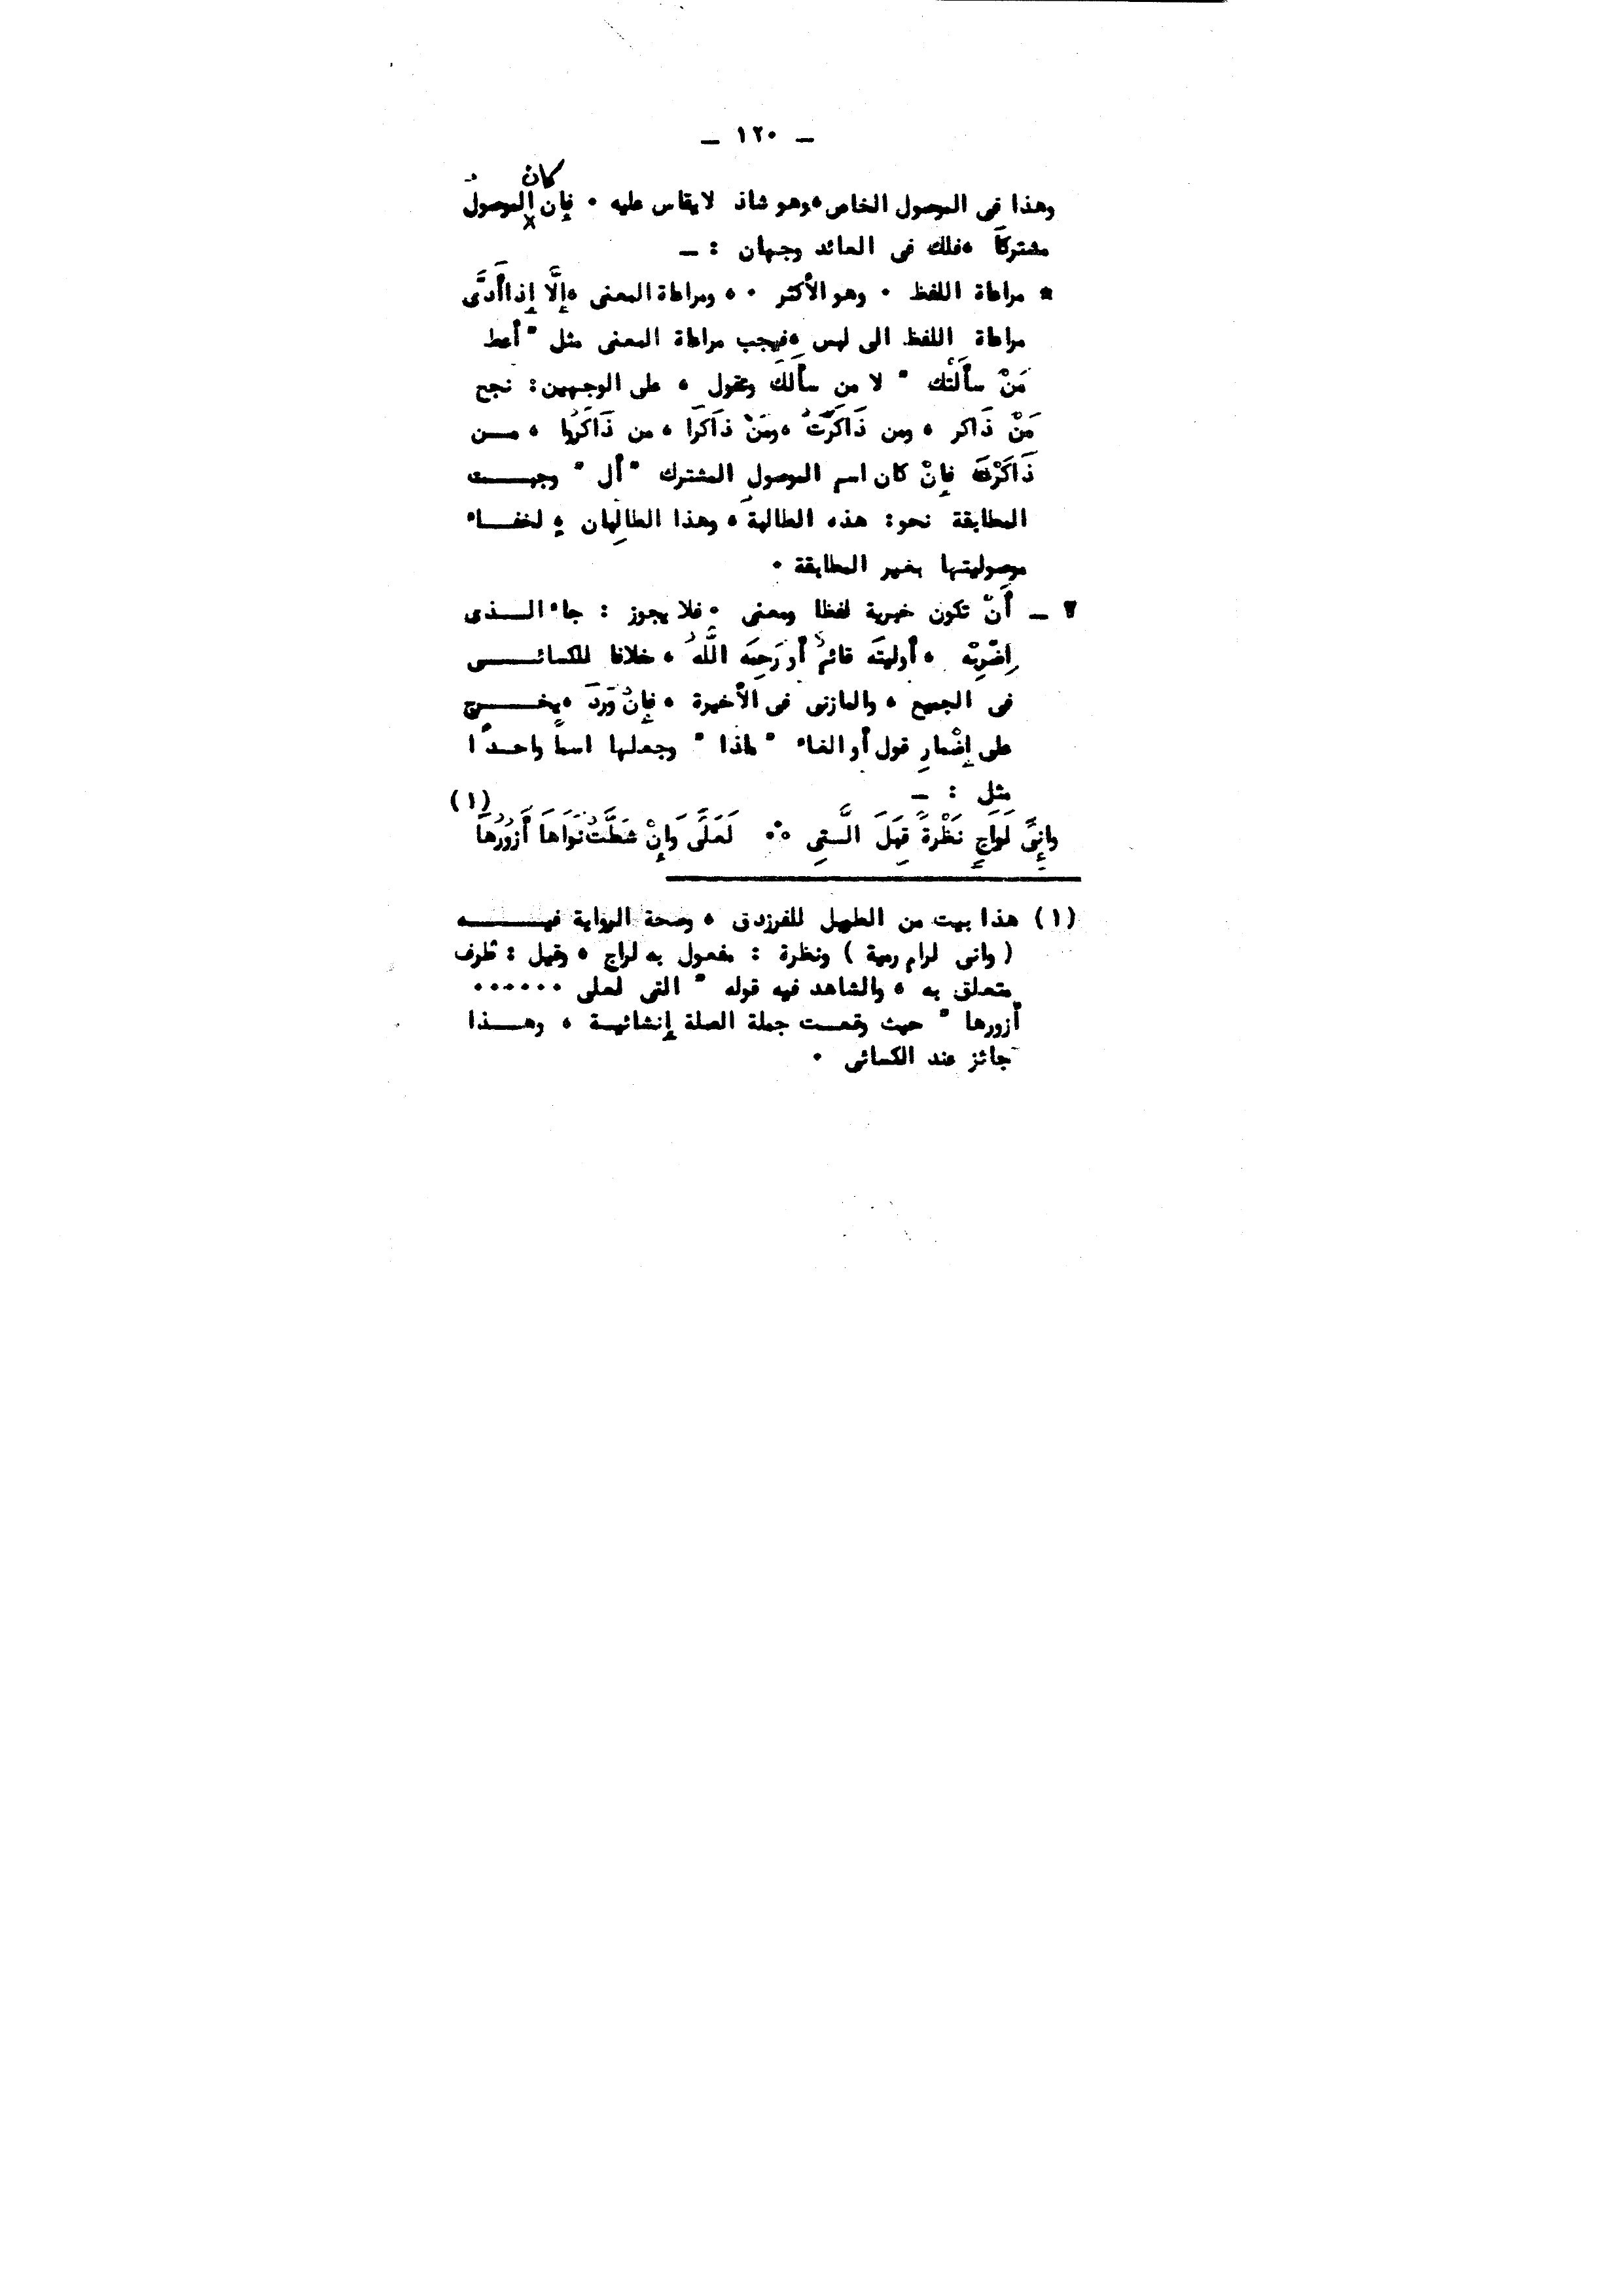 ــ ١٢٠ ــ
كان
وهذا فى الموصول الخاص ، وهو شاذ لا يقاس عليه . فإن الموصول
مشتركاً ، فلك فى العائد وجهان : ــ
* مراعاة اللفظ . وهو الأكثر . ، ومراعاة المعنى ، إلَّا إذا أَدَّى
مراعاة اللفظ الى لبس ، فيجب مراعاة المعنى مثل " أعط
مَنْ سأَلَتْك " لا من سأَلَكَ وتقول ، على الوجهين : نجح
مَنْ ذَاكر ، ومن ذَاكَرَتْ ، ومَنْ ذاَكَرَا ، من ذَاكَرُوا ، مــن
ذَاكَرْنَ فإِنْ كان اسم الموصول المشترك " أل " وجبــــت
المطابقة نحو : هذه الطالبة ، وهذا الطالِبان ، لخفــاء
موصوليتها بغير المطابقة .
٢ ــ أَنْ تكون خبرية لفظا ومعنى . فلا يجوز : جاء الــذى
اِضْرِبْه ، أوليته قائمٌ أو رَحِمَه اللَّهُ ، خلافا للكسائــــى
فى الجميع ، والمازنى فى الأخيرة ، فإِنْ وَرَدَ ، يخــــرج
على إضْمارِ قول أو الغاء " لماذا " وجعلها اسماً واحــدًا
مثل : ــ
وإِنِّى لَرَاجٍ نَظْرةً قِبَلَ الَّـتِى .·. لَعَلِّى وَإِنْ شَطَّتْ نَوَاهَا أَزُورُهَا (١)
(١) هذا بيت من الطويل للفرزدق ، وصحة الرواية فيــــه
( وانى لرام رمية ) ونظرة : مفعول به لراج ، وقيل : ظرف
متعلق به ، والشاهد فيه قوله " التى لعلى ......
أزورها " حيث وقعــت جملة الصلة إنشائيــة ، وهــذا
جائز عند الكسائى .